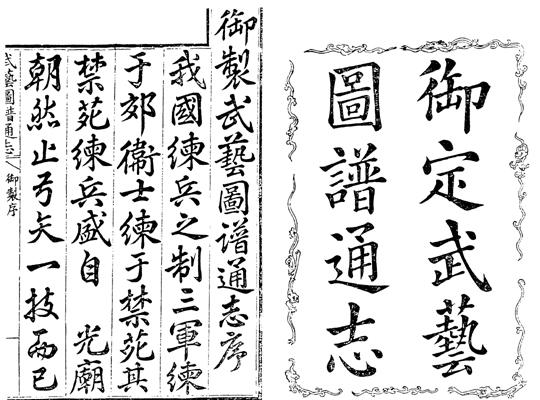 御定武藝
圖譜通志
御製武藝圖譜通志序
我國練兵之制三軍練
于郊衛士練于禁苑其
禁苑練兵盛自　光廟
朝然止弓矢一技而已
武藝圖譜通志　御製序